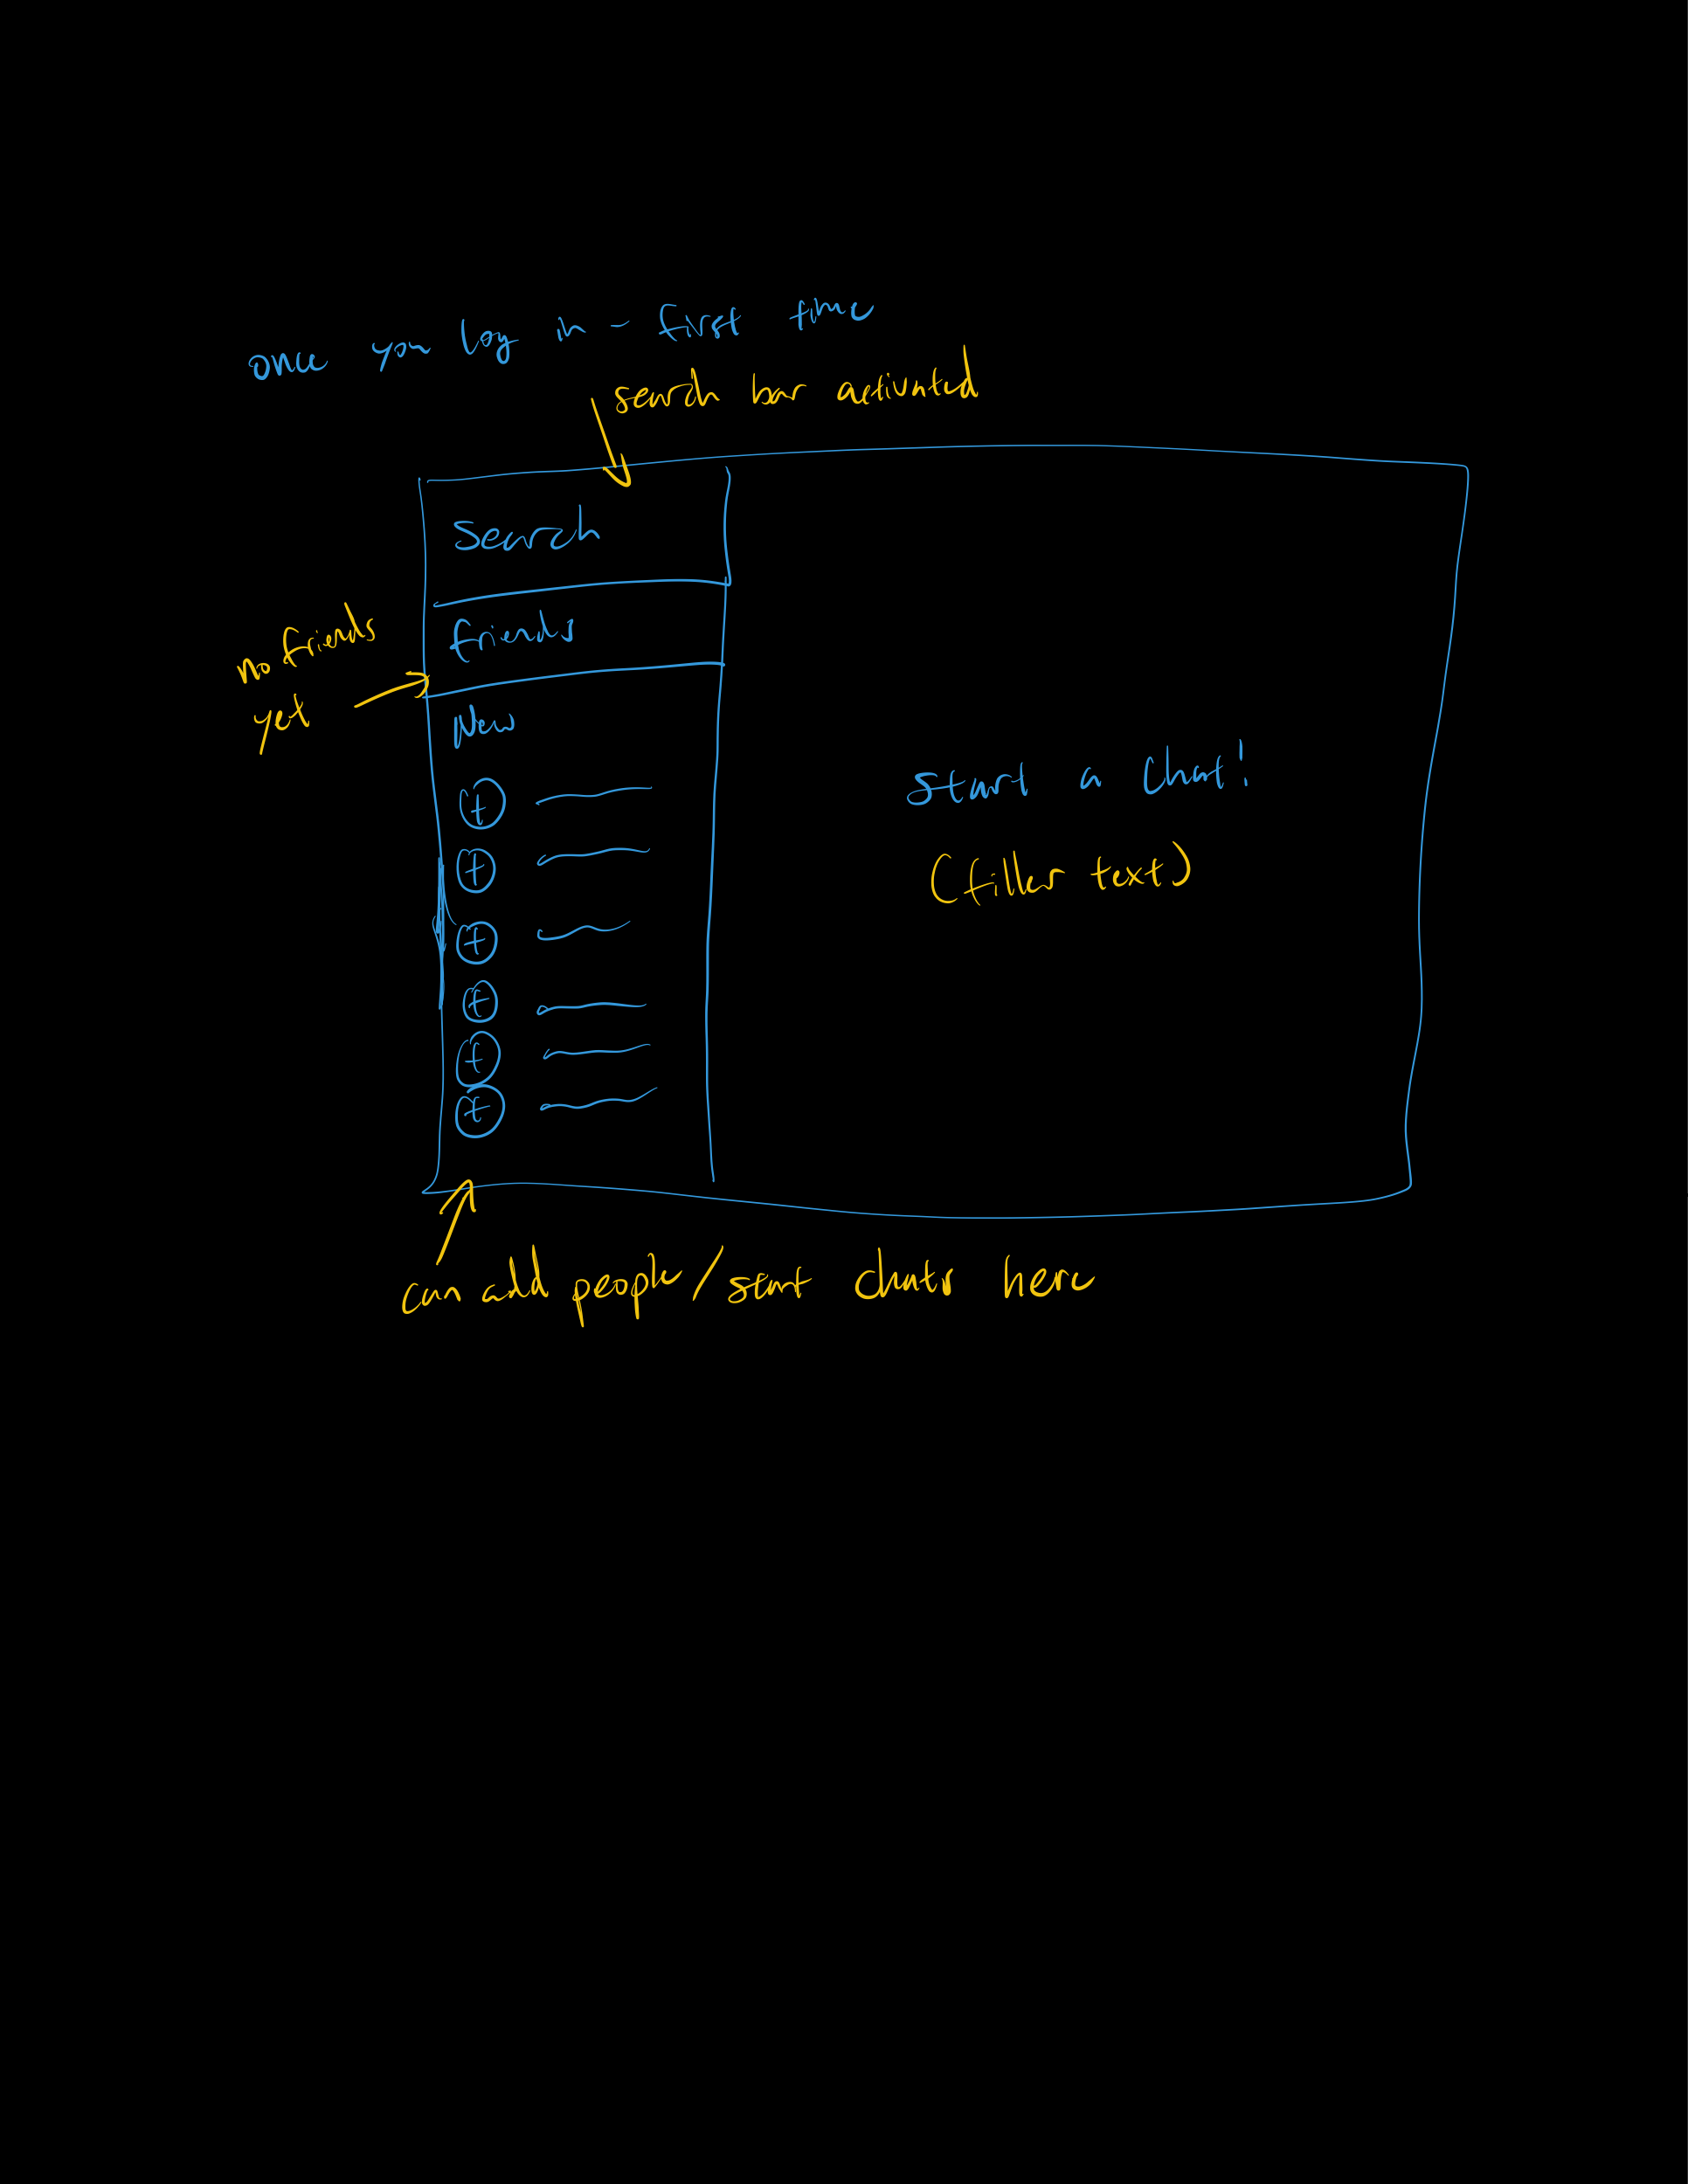 once you log in - first time
search bar activated
Search
friends
no friends
yet
New
+
+
+
+
+
+
Start a Chat!
(filler text)
can add people/start chats here